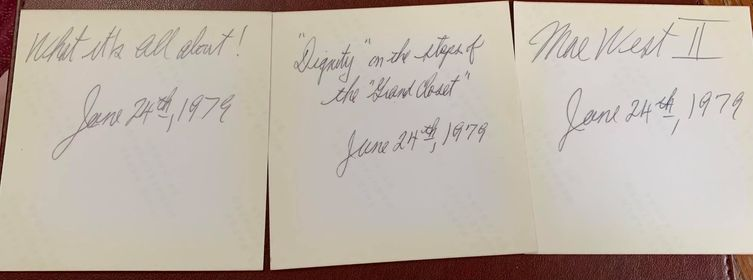 What it's all about!
June 24th, 1979
"Dignity" on the steps of
the "Grand Closet"
June 24th, 1979
Mae West II
June 24th, 1979